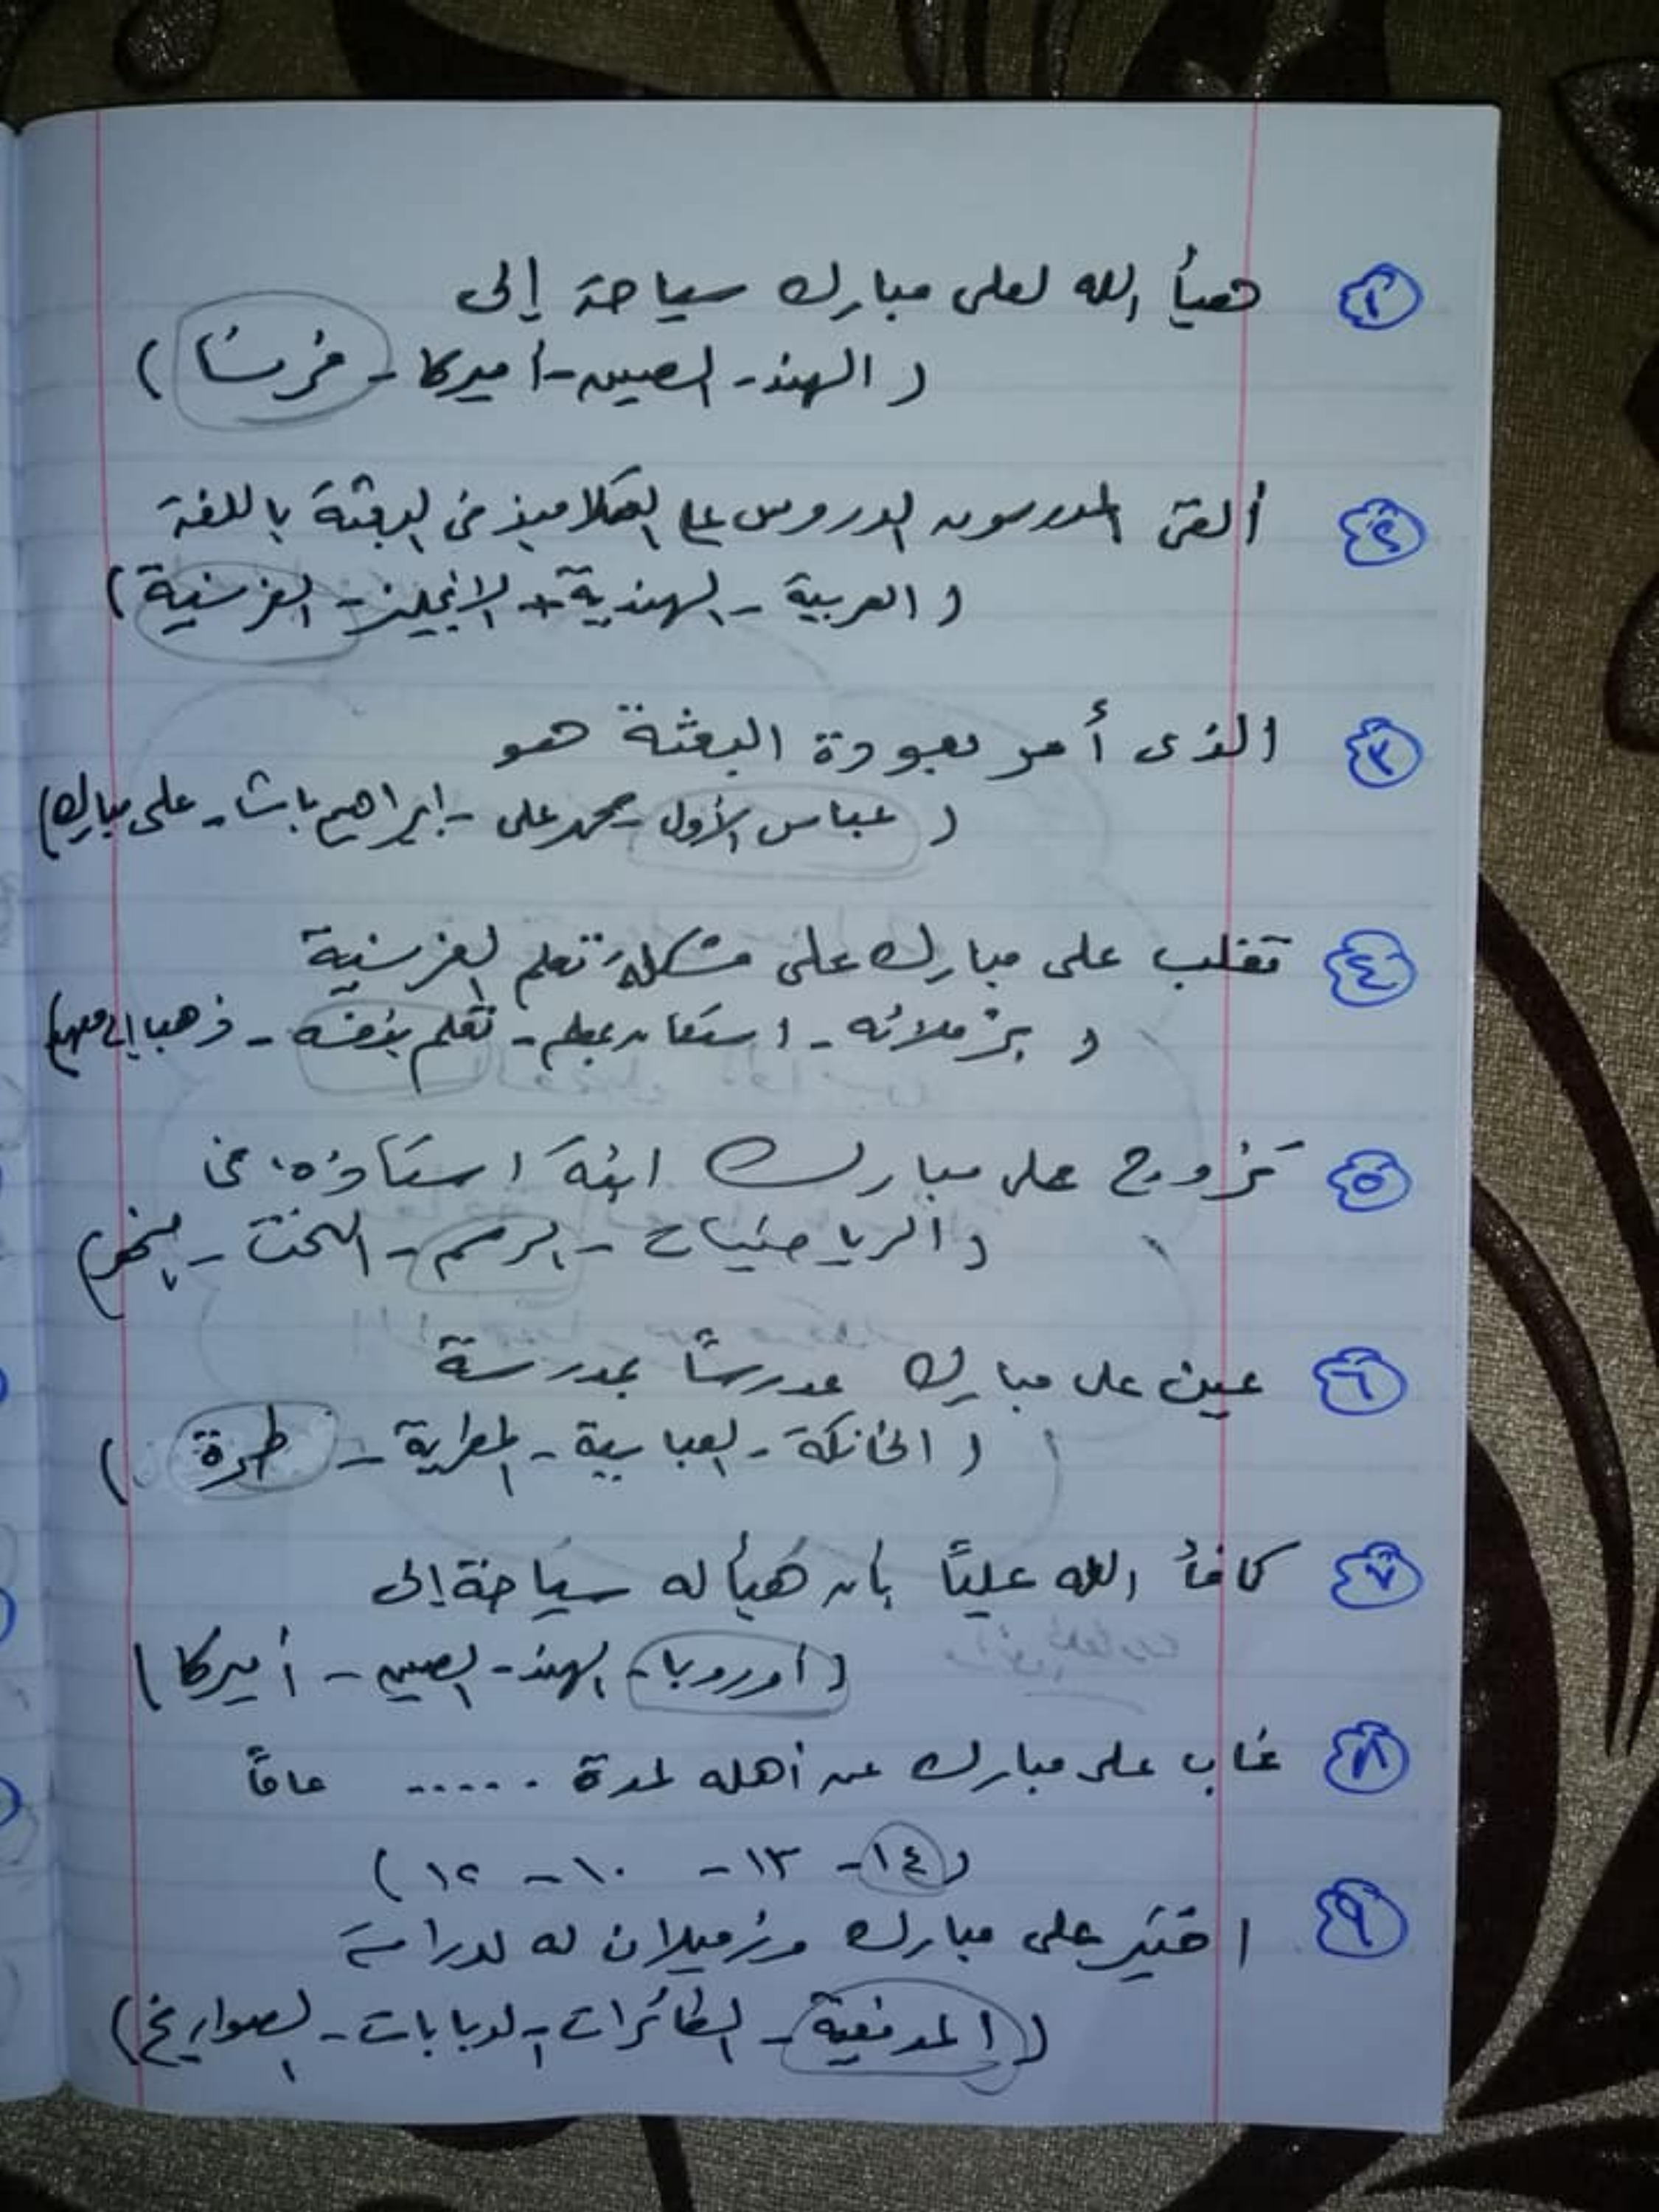 ١ هيأ الله لعلى مبارك سياحة إلى
( الهند - الصين - أميركا - فرنسا )
٢ ألقى المدرسون الدروس على التلاميذ فى البعثة باللغة
( العربية - الهندية - الإنجليز - الفرنسية )
٣ الذى أمر بعودة البعثة هو
( عباس الأول - محمد على - إبراهيم باشا - على مبارك )
٤ تغلب على مبارك على مشكلة تعلم الفرنسية
( بزملائه - استعان بمعلم - تعلم بنفسه - ذهب إلى )
٥ تزوج على مبارك ابنة استاذه فى
( الرياضيات - الرسم - النحت - )
٦ عين على مبارك مدرسًا بمدرسة
( الخانكة - العباسية - المطرية - طرة )
٧ كافأ الله عليًا بأن هيأ له سياحة إلى
( أوروبا - الهند - الصين - أميركا )
٨ غاب على مبارك عن أهله لمدة ...... عامًا
( ١٤ - ١٣ - ١٠ - ١٢ )
٩ اختير على مبارك وزميلان له لدراسة
( المدفعية - الطائرات - الدبابات - الصواريخ )